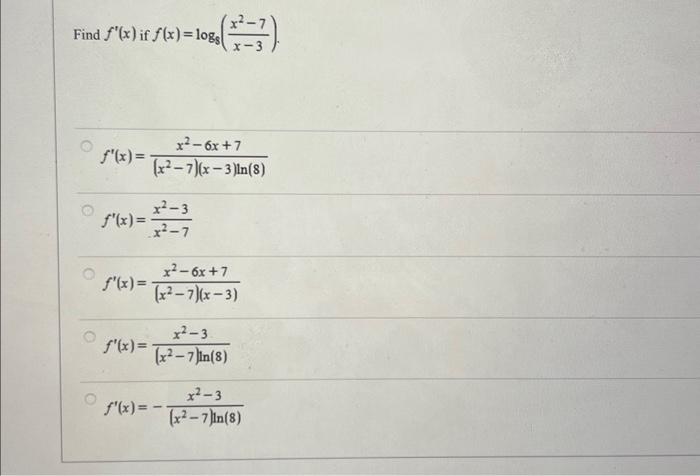 Find f'(x) if f(x) = log₈((x² − 7)/(x − 3)).
f'(x) = (x² − 6x + 7)/((x² − 7)(x − 3)ln(8))
f'(x) = (x² − 3)/(x² − 7)
f'(x) = (x² − 6x + 7)/((x² − 7)(x − 3))
f'(x) = (x² − 3)/((x² − 7)ln(8))
f'(x) = − (x² − 3)/((x² − 7)ln(8))